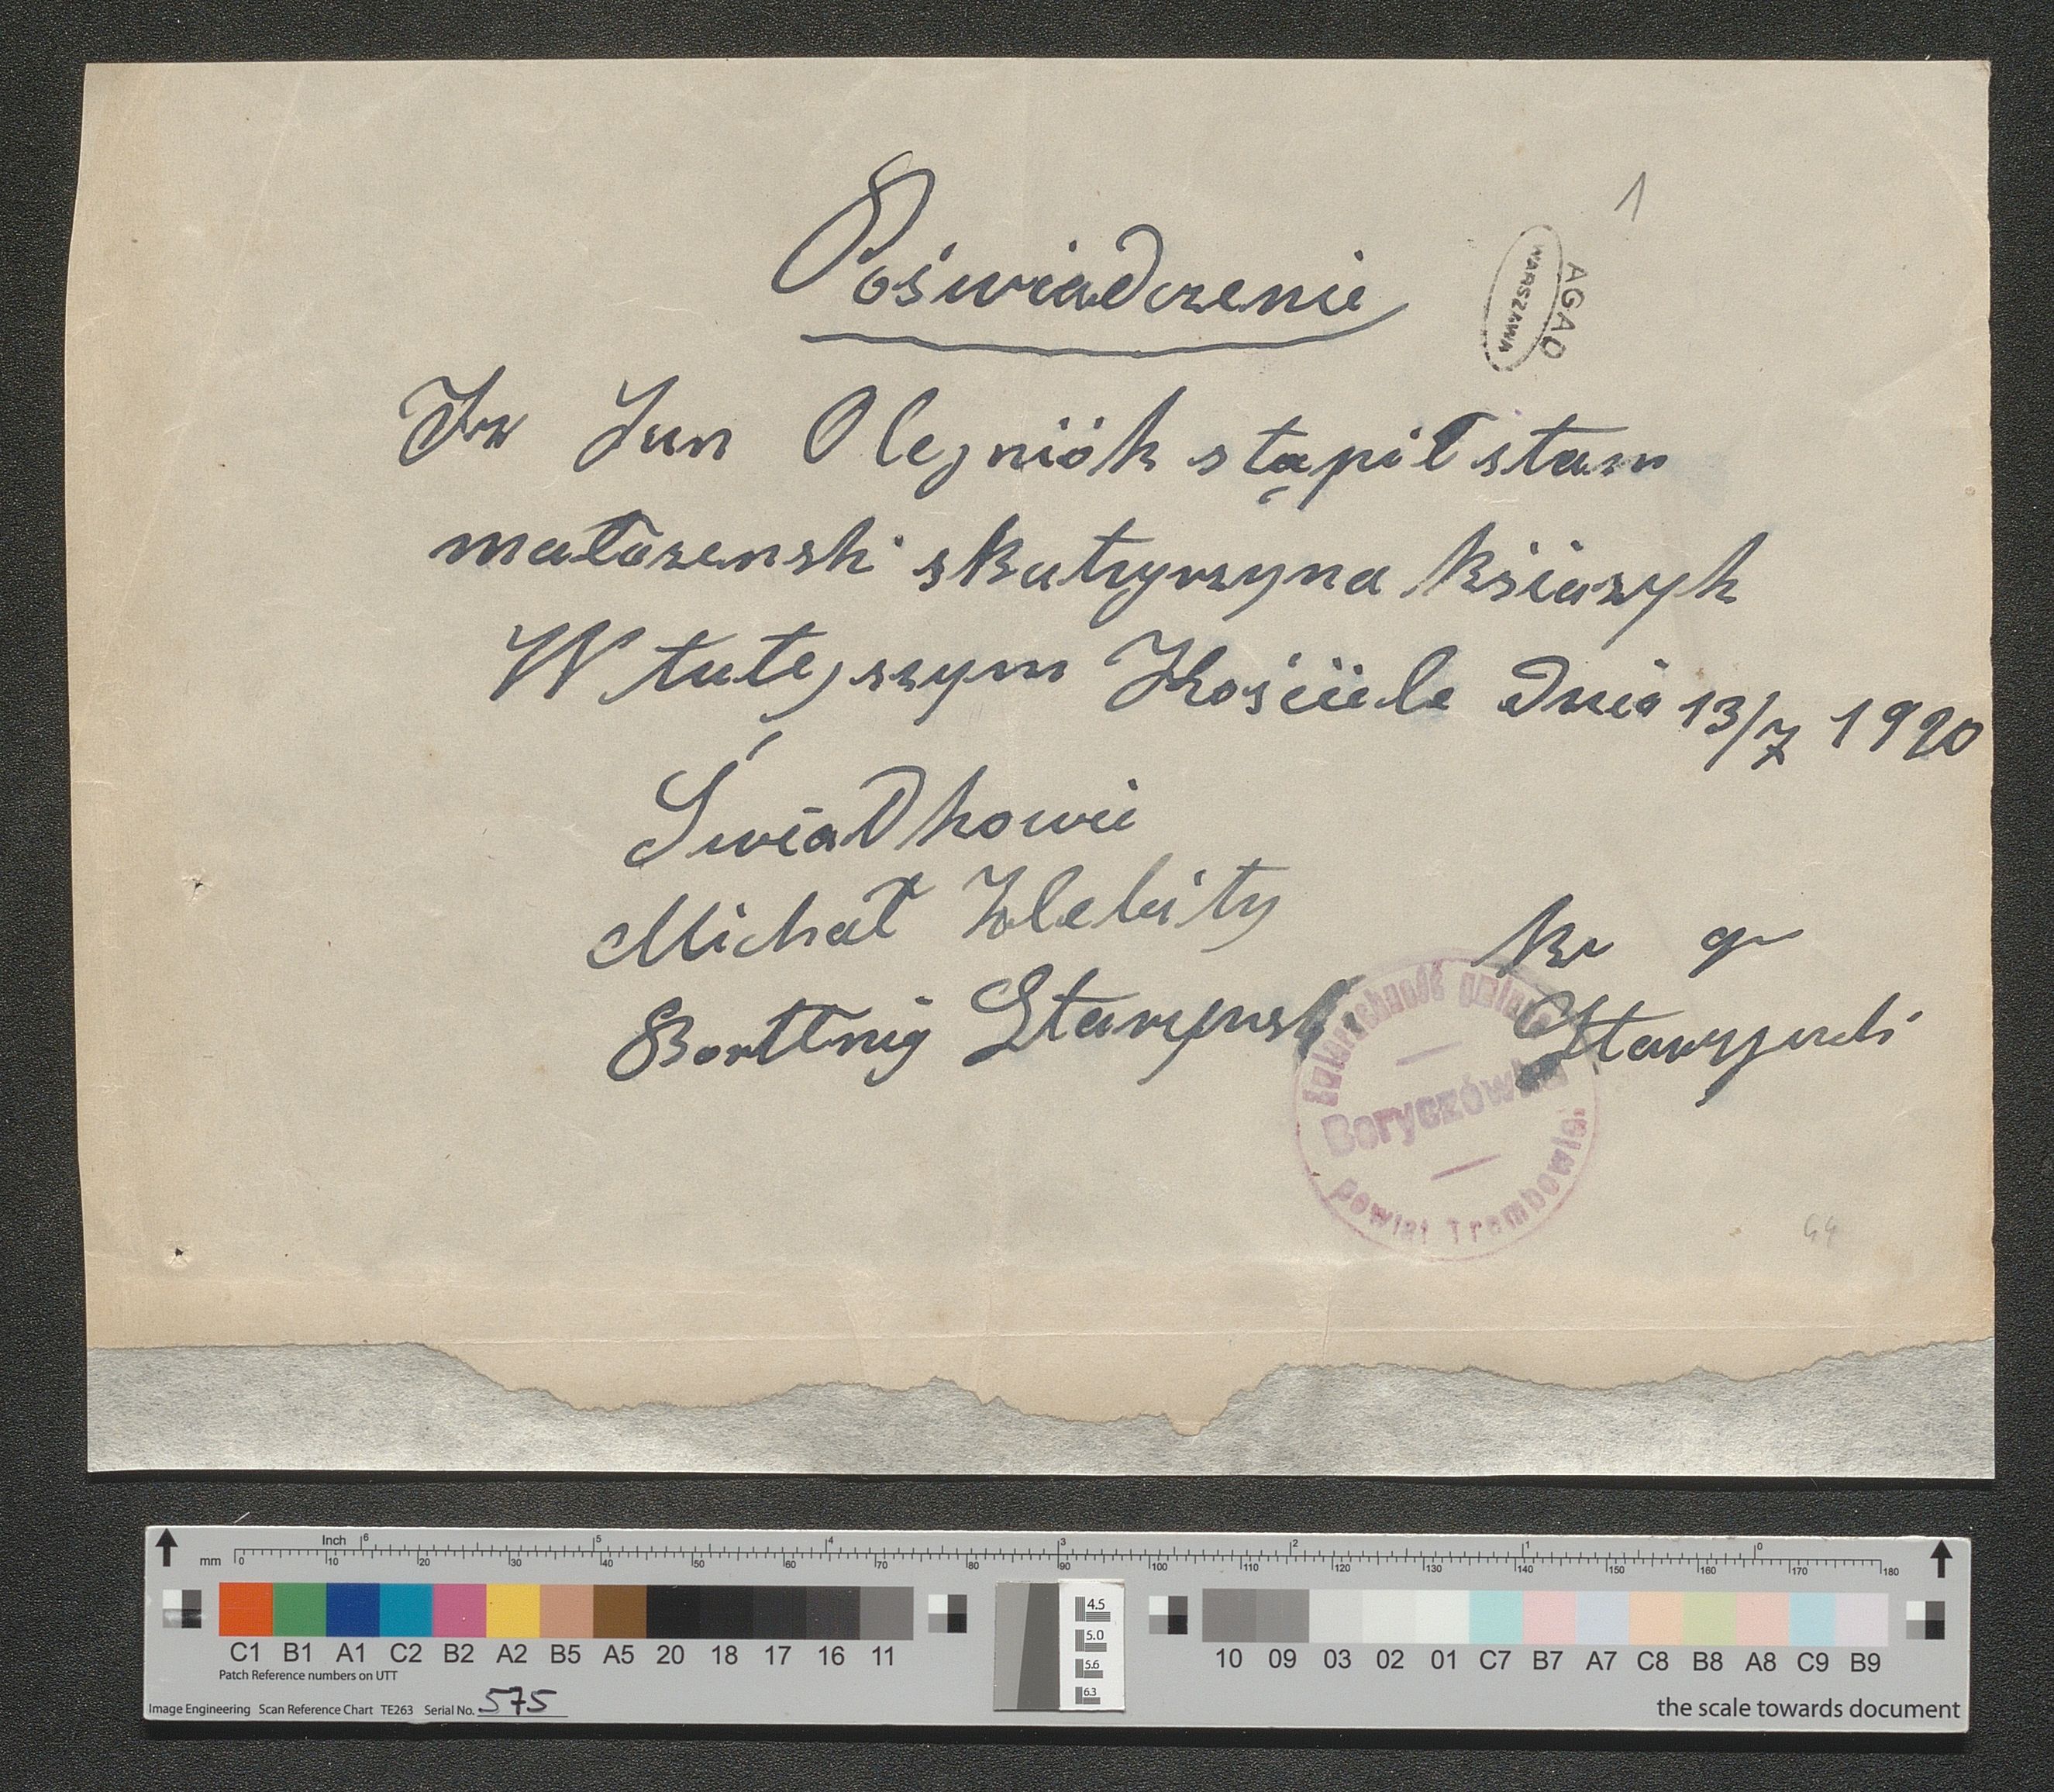 1
AGAD
WARSZAWA
Poświadczenie
Że Jan Olejniók stąpił stam
małozenski skatyrzyna Ksiazyk
W tutejszym Kościele Dnia 13/7 1920
Świadkowie
Michał
Bortłnig Starzynski
Starzynski
Zwierzchność gminna
Boryczówka
powiat Trembowla
44
mm Inch 6 5 4 3 2 1 0
0 10 20 30 40 50 60 70 80 90 100 110 120 130 140 150 160 170 180
4.5
5.0
5.6
6.3
C1 B1 A1 C2 B2 A2 B5 A5 20 18 17 16 11 10 09 03 02 01 C7 B7 A7 C8 B8 A8 C9 B9
Patch Reference numbers on UTT
Image Engineering Scan Reference Chart TE263 Serial No. 575
the scale towards document